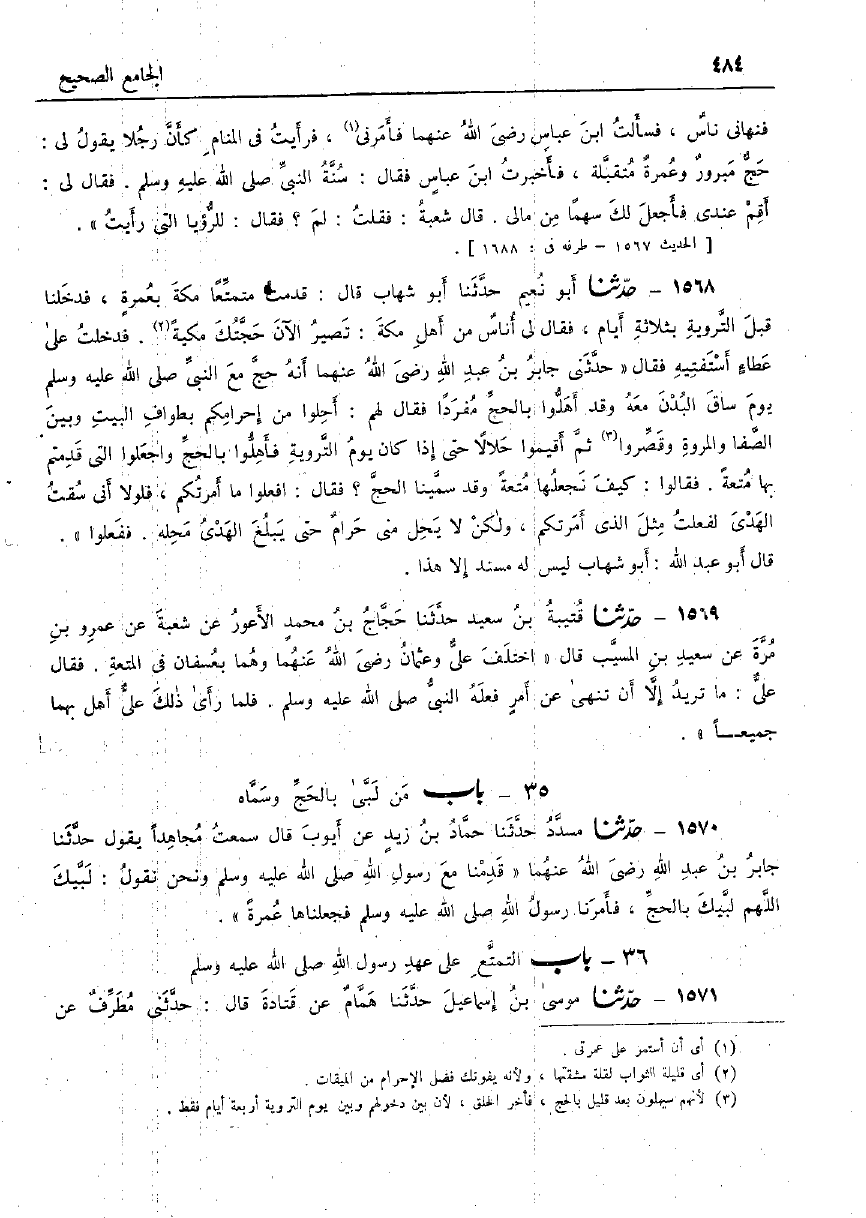 ٤٨٤
الجامع الصحيح
فنهانى ناسٌ ، فسألتُ ابنَ عباسٍ رضىَ اللهُ عنهما فأمَرنى(١) ، فرأيتُ فى المنامِ كأنَّ رجُلا يقولُ لى :
حَجٌّ مَبرورٌ وعُمرةٌ مُتقبَّلة ، فأخبرتُ ابنَ عباسٍ فقال : سُنَّةُ النبيِّ صلى الله عليهِ وسلم . فقال لى :
أقِمْ عندى فأجعلَ لكَ سهمًا مِن مالى . قال شعبةُ : فقلتُ : لمَ ؟ فقال : للرُّؤيا التى رأيتُ » .
[ الحديث ١٥٦٧ – طرفه فى : ١٦٨٨ ] .
١٥٦٨ – حدّثنا أبو نُعيمٍ حدَّثَنا أبو شهاب قال : قدمت متمتِّعًا مكةَ بعُمرةٍ ، فدخَلنا
قبلَ التَّرويةِ بثلاثةِ أيام ، فقال لى أُناسٌ من أهلِ مكةَ : تَصيرُ الآنَ حَجَّتُكَ مكيةً(٢) . فدخلتُ علىٰ
عَطاءٍ أسْتَفتِيهِ فقال « حدَّثَنى جابرُ بنُ عبدِ اللهِ رضىَ اللهُ عنهما أنهُ حجَّ معَ النبىِّ صلى الله عليه وسلم
يومَ ساقَ البُدْنَ معَهُ وقد أهَلُّوا بالحجِّ مُفرَدًا فقال لهم : أحِلوا من إحرامِكم بطوافِ البيتِ وبينَ
الصَّفا والمروةِ وقَصِّروا(٣) ثمَّ أقيموا حَلالًا حتى إذا كان يومُ التَّرويةِ فأهِلُّوا بالحجِّ واجعَلوا التى قَدِمتم
بها مُتعةً . فقالوا : كيفَ نَجعلُها مُتعةً وقد سمَّينا الحجَّ ؟ فقال : افعلوا ما أمرتُكم ، فلولا أنى سُقتُ
الهَدْىَ لفعلتُ مِثلَ الذى أمَرتكم ، ولٰكنْ لا يَحِل منى حَرامٌ حتى يَبلُغَ الهَدْىُ مَحِله . ففَعلوا » .
قال أبو عبد الله : أبو شهاب ليس له مسند إلا هذا .
١٥٦٩ – حدّثنا قُتيبةُ بنُ سعيد حدَّثَنا حَجَّاجُ بنُ محمدٍ الأعورُ عن شعبةَ عن عمرو بنِ
مُرَّةَ عن سعيدِ بنِ المسيَّب قال « اختلَفَ علىٌّ وعثمانُ رضىَ اللهُ عَنهُما وهُما بعُسفان فى المتعةِ . فقال
علىٌّ : ما تريدُ إلَّا أن تنهىٰ عن أمرٍ فعلَهُ النبىُّ صلى الله عليه وسلم . فلما رأىٰ ذٰلكَ علىٌّ أهل بهما
جميعــاً » .
٣٥ – باب مَن لَبَّىٰ بالحَجِّ وسَمَّاه
١٥٧٠ – حدّثنا مسدَّدُ حدَّثَنا حمَّادُ بنُ زيدٍ عن أيوبَ قال سمعتُ مُجاهِداً يقول حدَّثَنا
جابرُ بنُ عبدِ اللهِ رضىَ اللهُ عنهُما « قَدِمْنا معَ رسولِ اللهِ صلى الله عليه وسلم ونحن نقولُ : لَبَّيكَ
اللَّهم لبَّيكَ بالحجِّ ، فأمرَنا رسولُ اللهِ صلى الله عليه وسلم فجعلناها عُمرةً » .
٣٦ – باب التمتَّعِ على عهدِ رسول اللهِ صلى الله عليه وسلم
١٥٧١ – حدّثنا موسىٰ بنُ إسماعيلَ حدَّثَنا هَمَّامٌ عن قَتادةَ قال : حدَّثَنى مُطَرِّفٌ عن
(١) أى أن أستمر على عمرتى .
(٢) أى قليلة الثواب لقلة مشقتها ، ولأنه يفوتك فضل الإحرام من الميقات .
(٣) لأنهم سيهلون بعد قليل بالحج ، فأخر الحلق ، لأن بين دخولهم وبين يوم التروية أربعة أيام فقط .